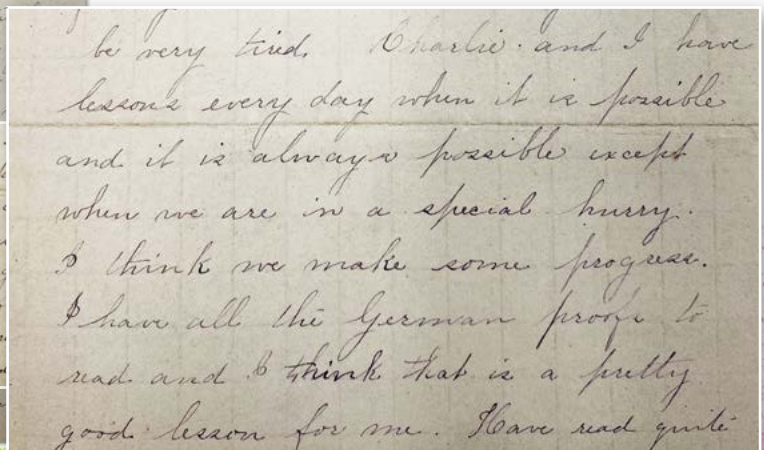 be very tired. Charlie and I have
lessons every day when it is possible
and it is always possible except
when we are in a special hurry.
I think we make some progress.
I have all the German proofs to
read and I think that is a pretty
good lesson for me. Have read quite